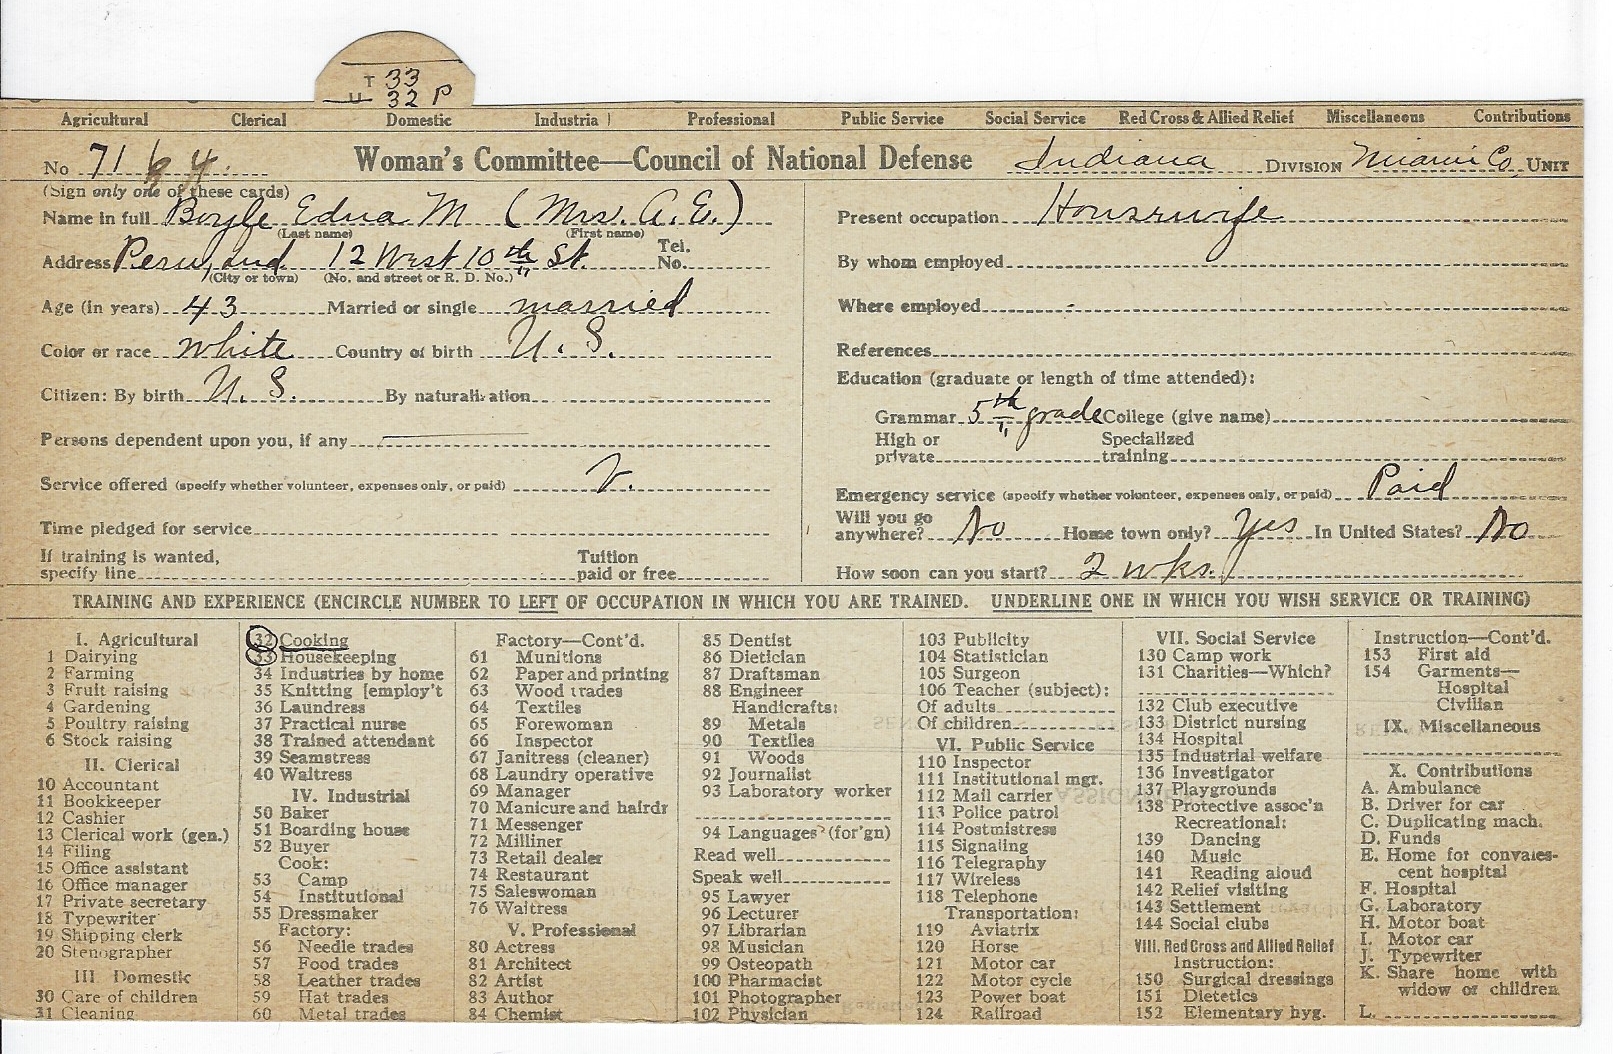 T 33
U 32 P
Agricultural Clerical Domestic Industrial Professional Public Service Social Service Red Cross & Allied Relief Miscellaneous Contributions
No 71 Woman's Committee—Council of National Defense Indiana DIVISION Miami Co. UNIT
(Sign only one of these cards)
Name in full Boyle Edna M (Mrs. A. E.)
(Last name) (First name)
Address Peru, Ind. 12 West 10th St. Tel. No.
(City or town) (No. and street or R. D. No.)
Age (in years) 43 Married or single married
Color or race white Country of birth U. S.
Citizen: By birth U. S. By naturalization
Persons dependent upon you, if any
Service offered (specify whether volunteer, expenses only, or paid) V.
Time pledged for service
If training is wanted, specify line Tuition paid or free
Present occupation Housewife
By whom employed
Where employed
References
Education (graduate or length of time attended):
Grammar 5th grade College (give name)
High or private Specialized training
Emergency service (specify whether volunteer, expenses only, or paid) Paid
Will you go anywhere? No Home town only? Yes In United States? No
How soon can you start? 2 wks.
TRAINING AND EXPERIENCE (ENCIRCLE NUMBER TO LEFT OF OCCUPATION IN WHICH YOU ARE TRAINED. UNDERLINE ONE IN WHICH YOU WISH SERVICE OR TRAINING)
I. Agricultural
1 Dairying
2 Farming
3 Fruit raising
4 Gardening
5 Poultry raising
6 Stock raising
II. Clerical
10 Accountant
11 Bookkeeper
12 Cashier
13 Clerical work (gen.)
14 Filing
15 Office assistant
16 Office manager
17 Private secretary
18 Typewriter
19 Shipping clerk
20 Stenographer
III Domestic
30 Care of children
31 Cleaning
32 Cooking
33 Housekeeping
34 Industries by home
35 Knitting [employ't
36 Laundress
37 Practical nurse
38 Trained attendant
39 Seamstress
40 Waitress
IV. Industrial
50 Baker
51 Boarding house
52 Buyer
Cook:
53 Camp
54 Institutional
55 Dressmaker
Factory:
56 Needle trades
57 Food trades
58 Leather trades
59 Hat trades
60 Metal trades
Factory—Cont'd.
61 Munitions
62 Paper and printing
63 Wood trades
64 Textiles
65 Forewoman
66 Inspector
67 Janitress (cleaner)
68 Laundry operative
69 Manager
70 Manicure and hairdr
71 Messenger
72 Milliner
73 Retail dealer
74 Restaurant
75 Saleswoman
76 Waitress
V. Professional
80 Actress
81 Architect
82 Artist
83 Author
84 Chemist
85 Dentist
86 Dietician
87 Draftsman
88 Engineer
Handicrafts:
89 Metals
90 Textiles
91 Woods
92 Journalist
93 Laboratory worker
94 Languages (for'gn)
Read well
Speak well
95 Lawyer
96 Lecturer
97 Librarian
98 Musician
99 Osteopath
100 Pharmacist
101 Photographer
102 Physician
103 Publicity
104 Statistician
105 Surgeon
106 Teacher (subject):
Of adults
Of children
VI. Public Service
110 Inspector
111 Institutional mgr.
112 Mail carrier
113 Police patrol
114 Postmistress
115 Signaling
116 Telegraphy
117 Wireless
118 Telephone
Transportation:
119 Aviatrix
120 Horse
121 Motor car
122 Motor cycle
123 Power boat
124 Railroad
VII. Social Service
130 Camp work
131 Charities—Which?
132 Club executive
133 District nursing
134 Hospital
135 Industrial welfare
136 Investigator
137 Playgrounds
138 Protective assoc'n
Recreational:
139 Dancing
140 Music
141 Reading aloud
142 Relief visiting
143 Settlement
144 Social clubs
VIII. Red Cross and Allied Relief
Instruction:
150 Surgical dressings
151 Dietetics
152 Elementary hyg.
Instruction—Cont'd.
153 First aid
154 Garments—
Hospital
Civilian
IX. Miscellaneous
X. Contributions
A. Ambulance
B. Driver for car
C. Duplicating mach.
D. Funds
E. Home for convales-
cent hospital
F. Hospital
G. Laboratory
H. Motor boat
I. Motor car
J. Typewriter
K. Share home with
widow or children
L.